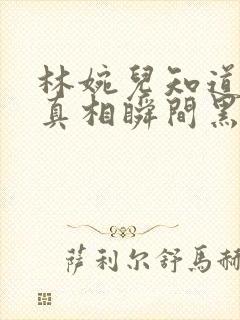 林婉兒知道
真相瞬間黑
萨利尔舒馬赫